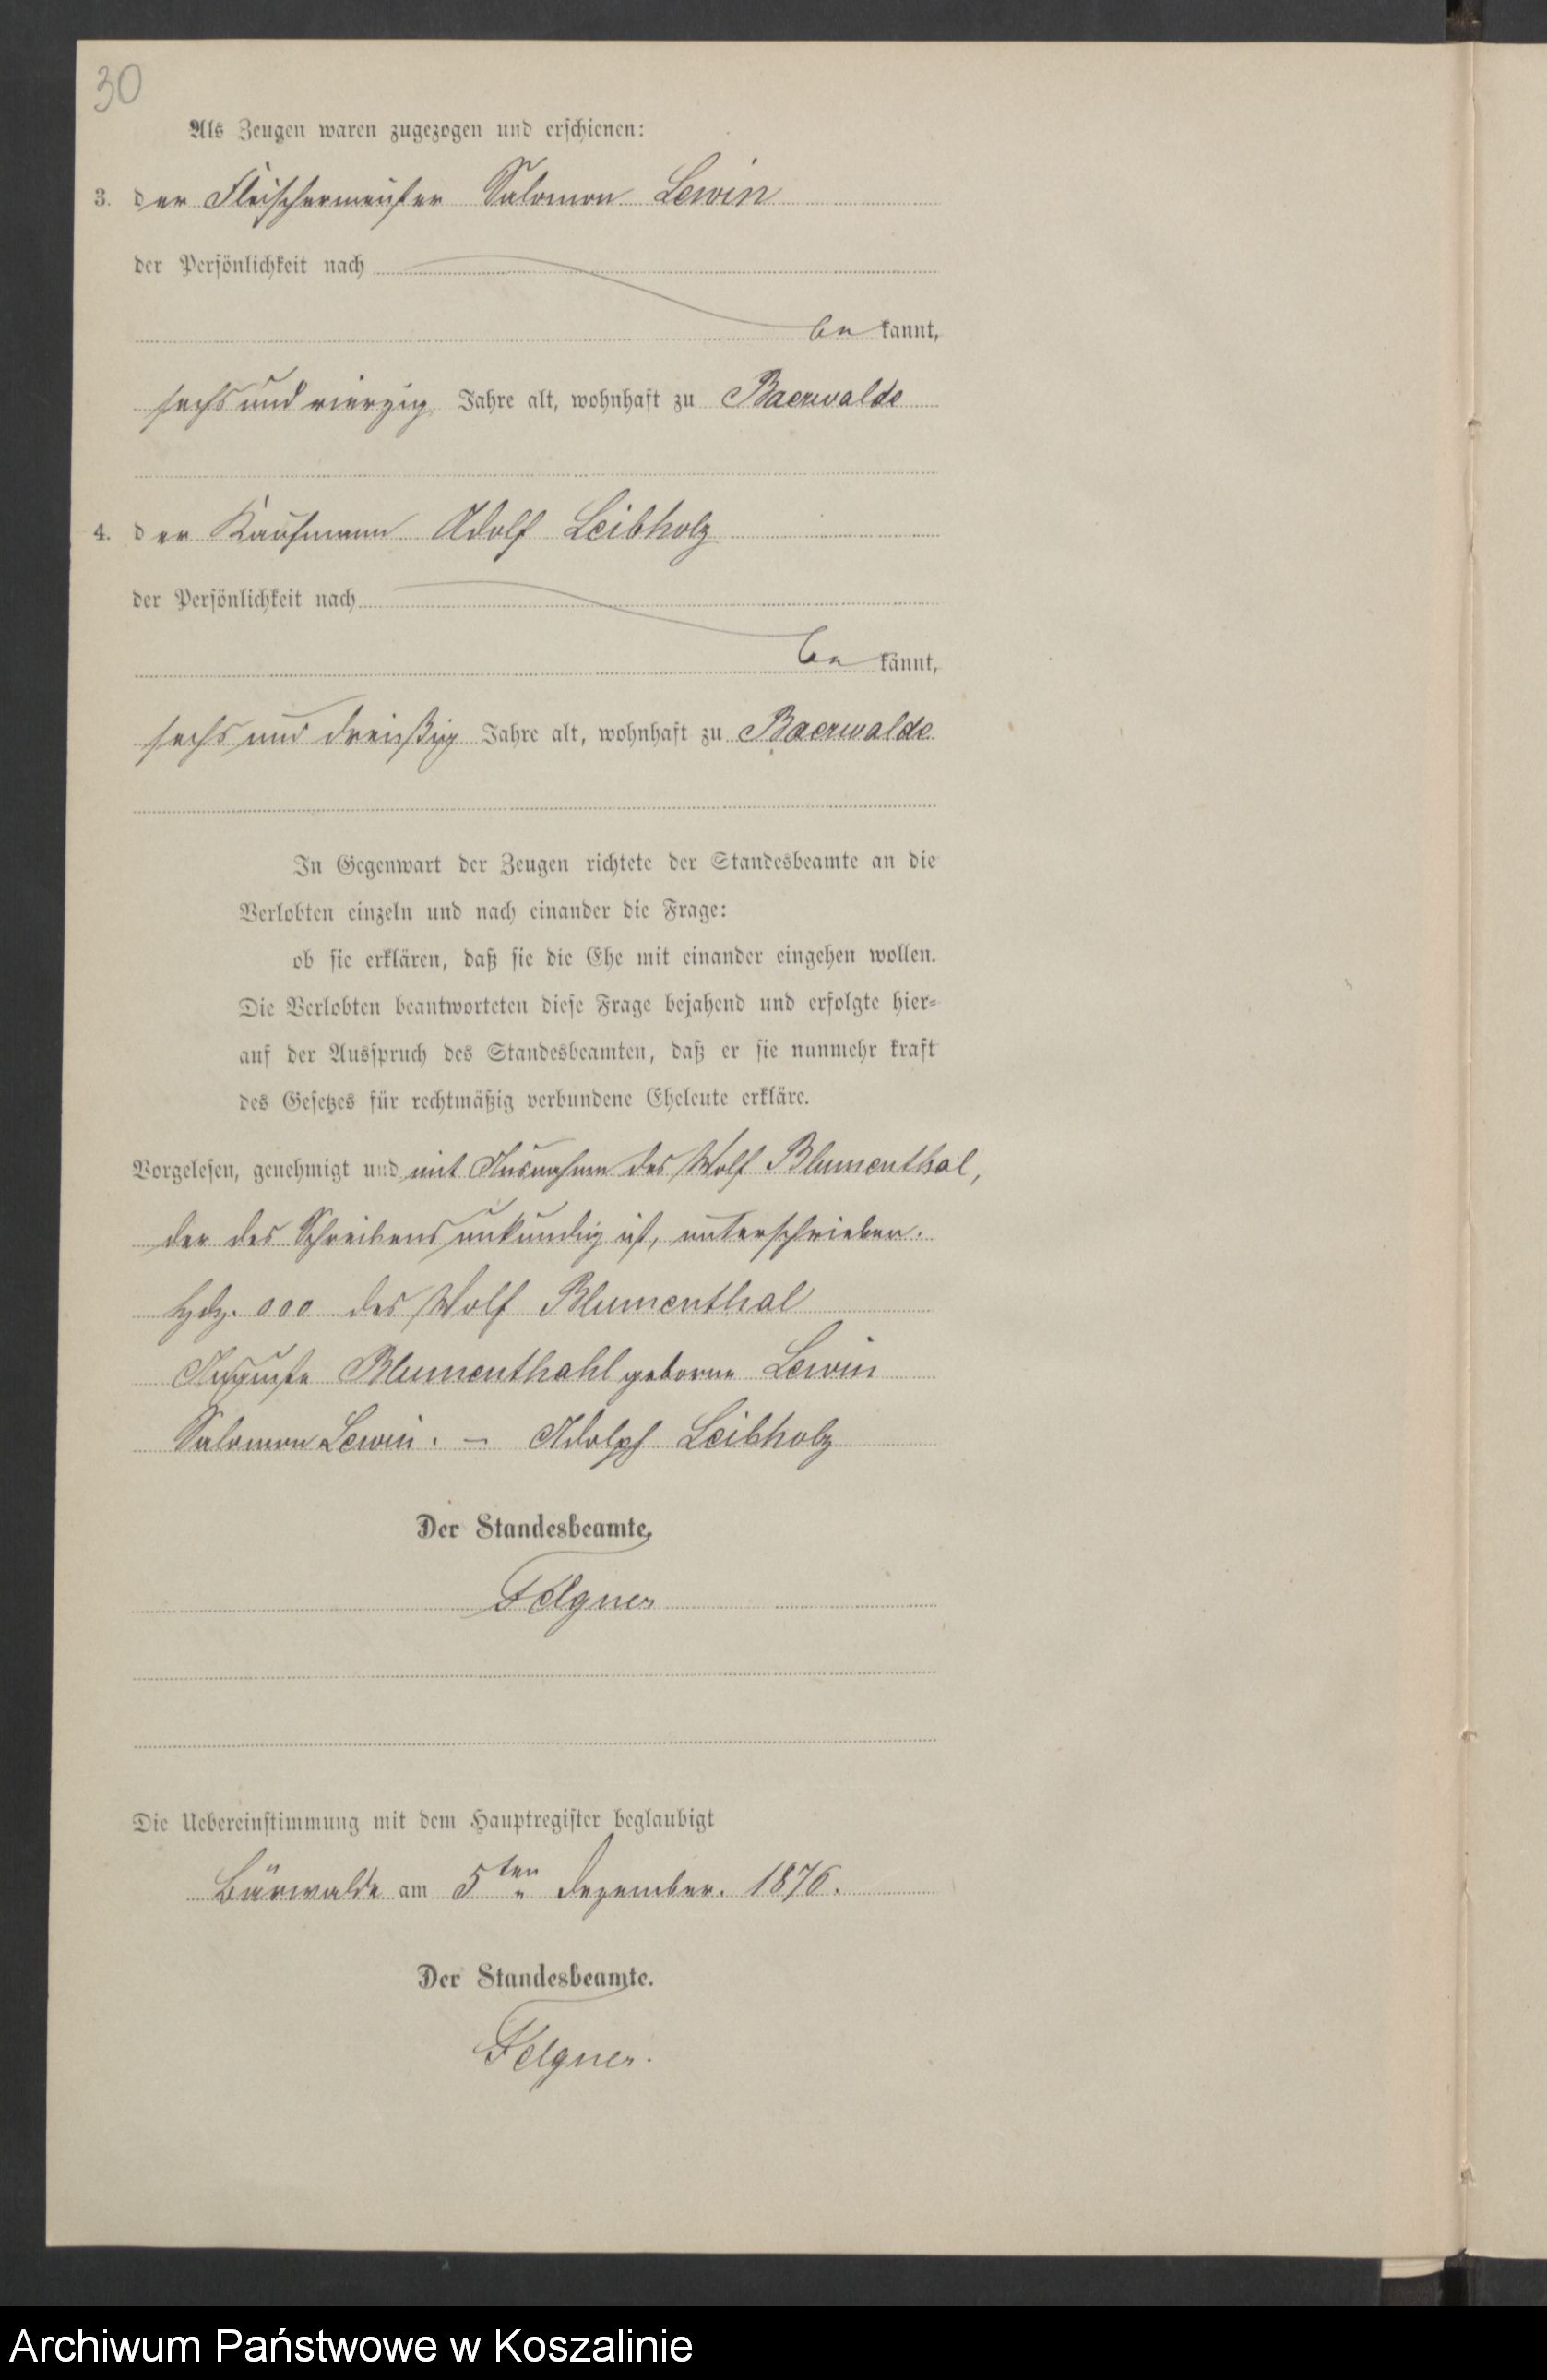 30
Als Zeugen waren zugezogen und erschienen:
3. der Fleischermeister Salomon Lewin
der Persönlichkeit nach
bekannt,
sechs und vierzig Jahre alt, wohnhaft zu Baerwalde
4. der Kaufmann Adolf Leibholz
der Persönlichkeit nach
bekannt,
sechs und dreißig Jahre alt, wohnhaft zu Baerwalde
In Gegenwart der Zeugen richtete der Standesbeamte an die
Verlobten einzeln und nach einander die Frage:
ob sie erklären, daß sie die Ehe mit einander eingehen wollen.
Die Verlobten beantworteten diese Frage bejahend und erfolgte hier-
auf der Ausspruch des Standesbeamten, daß er sie nunmehr kraft
des Gesetzes für rechtmäßig verbundene Eheleute erkläre.
Vorgelesen, genehmigt und mit Ausnahme des Wolf Blumenthal,
der des Schreibens unkundig ist, unterschrieben.
Hdz. ooo des Wolf Blumenthal
Auguste Blumenthahl geborne Lewin
Salomon Lewin. – Adolph Leibholz
Der Standesbeamte,
Felgner
Die Uebereinstimmung mit dem Hauptregister beglaubigt
Bärwalde am 5ten Dezember. 1876.
Der Standesbeamte.
Felgner.
Archiwum Państwowe w Koszalinie